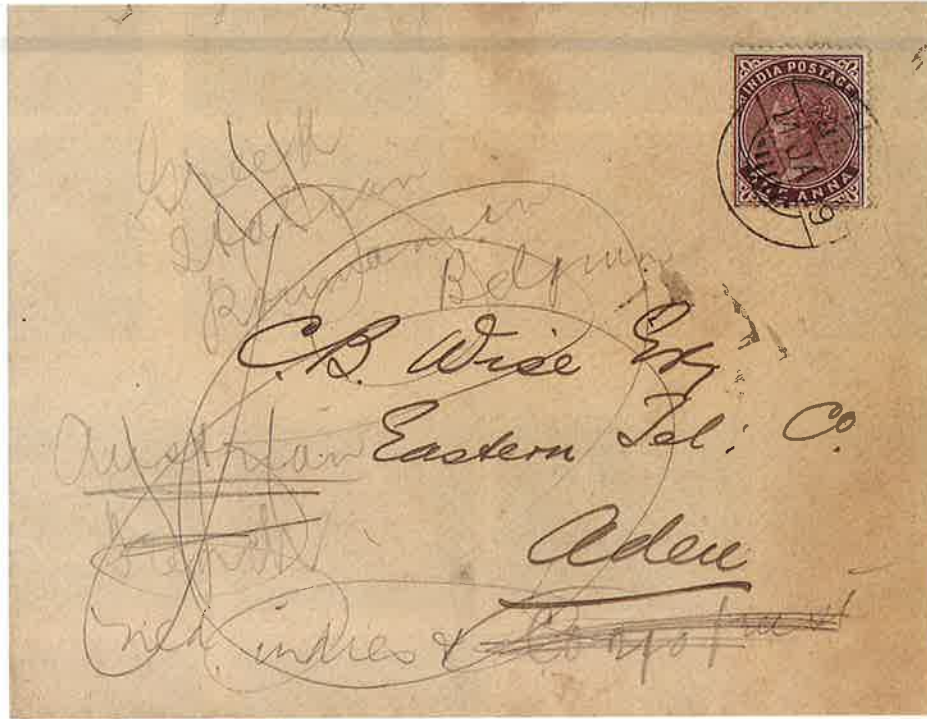 INDIA POSTAGE
ONE ANNA
Greek
Italian
Roumanian
Belgium
C.B. Wise Esq
Eastern Tel: Co
Austrian
Aden
Ned. indies &